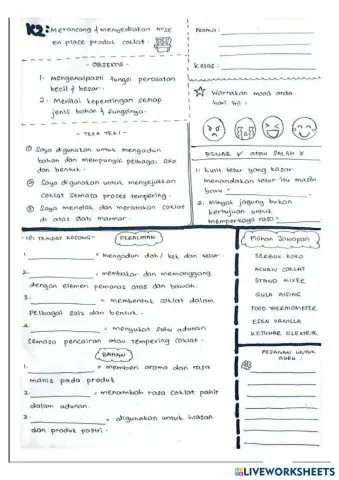 K2: Merancang & menyediakan mise
en place produk coklat.
- OBJEKTIF -
1. Mengenalpasti fungsi peralatan
kecil & besar.
2. Menilai kepentingan setiap
jenis bahan & fungsinya.
Nama :
Kelas :
Warnakan mood anda
hari ini :
- TEKA TEKI -
① Saya digunakan untuk mengadun
bahan dan mempunyai pelbagai saiz
dan bentuk.
② Saya digunakan untuk menyejukkan
coklat semasa proses tempering.
③ Saya menolak dan meratakan coklat
di atas slab marmar.
BENAR √ atau SALAH X
1. Kulit telur yang kasar
menandakan telur itu masih
baru "
2. Minyak jagung bukan
bertujuan untuk
memperkaya rasa "
- ISI TEMPAT KOSONG -
PERALATAN
1. = Mengadun doh / kek dan telur.
2. = membakar dan memanggang
dengan elemen pemanas atas dan bawah.
3. = membentuk coklat dalam
pelbagai saiz dan bentuk.
4. = menyukat suhu adunan
semasa pencairan atau tempering coklat.
BAHAN
1. = memberi aroma dan rasa
manis pada produk
2. = menambah rasa coklat pahit
dalam adunan.
3. = digunakan untuk hiasan
dan produk pastri.
Pilihan Jawapan
SERBUK KOKO
ACUAN COKLAT
STAND MIXER
GULA AISING
FOOD THERMOMETER
ESEN VANILLA
KETUHAR ELEKTRIK
PESANAN UNTUK
GURU :
LIVEWORKSHEETS